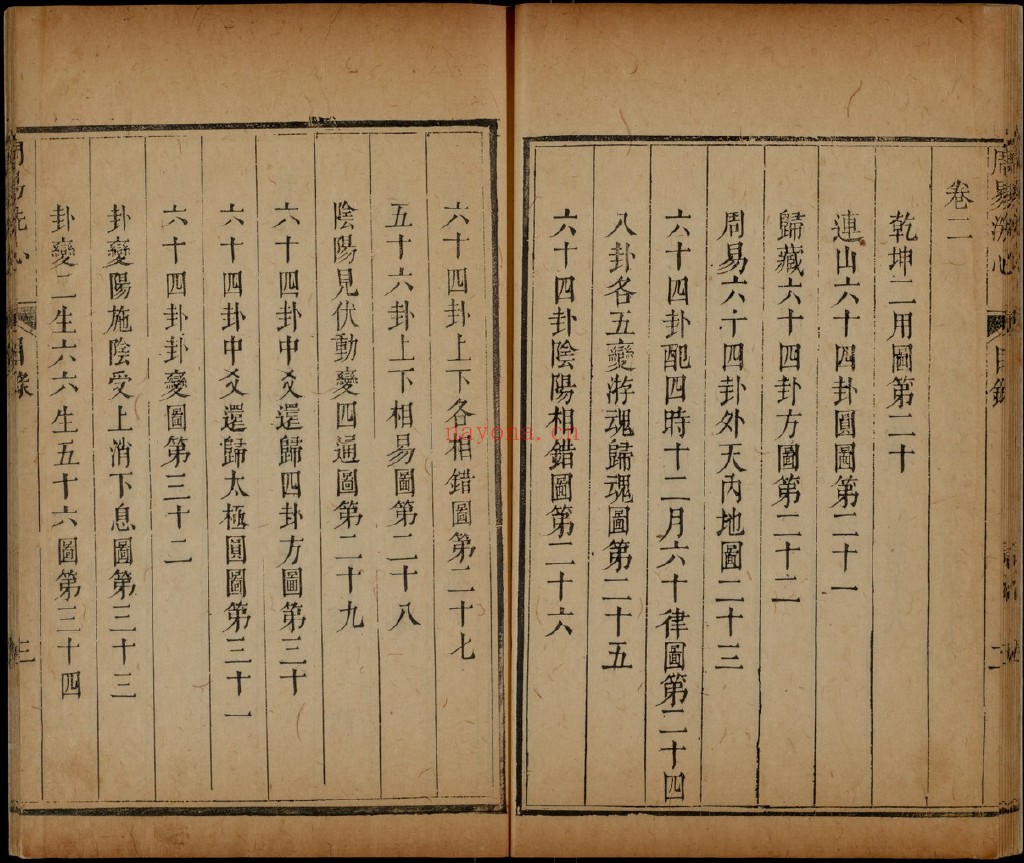 周易洗心
目錄
二
卷二
乾坤二用圖第二十
連山六十四卦圓圖第二十一
歸藏六十四卦方圖第二十二
周易六十四卦外天內地圖二十三
六十四卦配四時十二月六十律圖第二十四
八卦各五變游魂歸魂圖第二十五
六十四卦陰陽相錯圖第二十六
六十四卦上下各相錯圖第二十七
五十六卦上下相易圖第二十八
陰陽見伏動變四通圖第二十九
六十四卦中爻還歸四卦方圖第三十
六十四卦中爻還歸太極圓圖第三十一
六十四卦卦變圖第三十二
卦變陽施陰受上消下息圖第三十三
卦變二生六六生五十六圖第三十四
周易洗心
目錄
三
nayona.cn